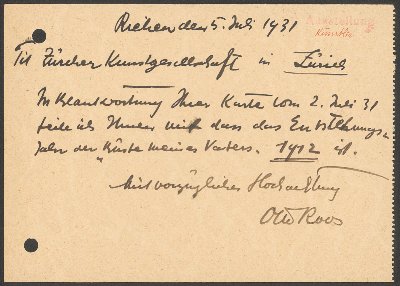 Riehen den 5. Juli 1931
Ausstellung
Künstler
Tit. Zürcher Kunstgesellschaft in Zürich
In Beantwortung Ihrer Karte vom 2. Juli 31
teile ich Ihnen mit dass das Entstehungs=
Jahr der „Büste meines Vaters. 1912 ist.
Mit vorzüglicher Hochachtung
Otto Roos